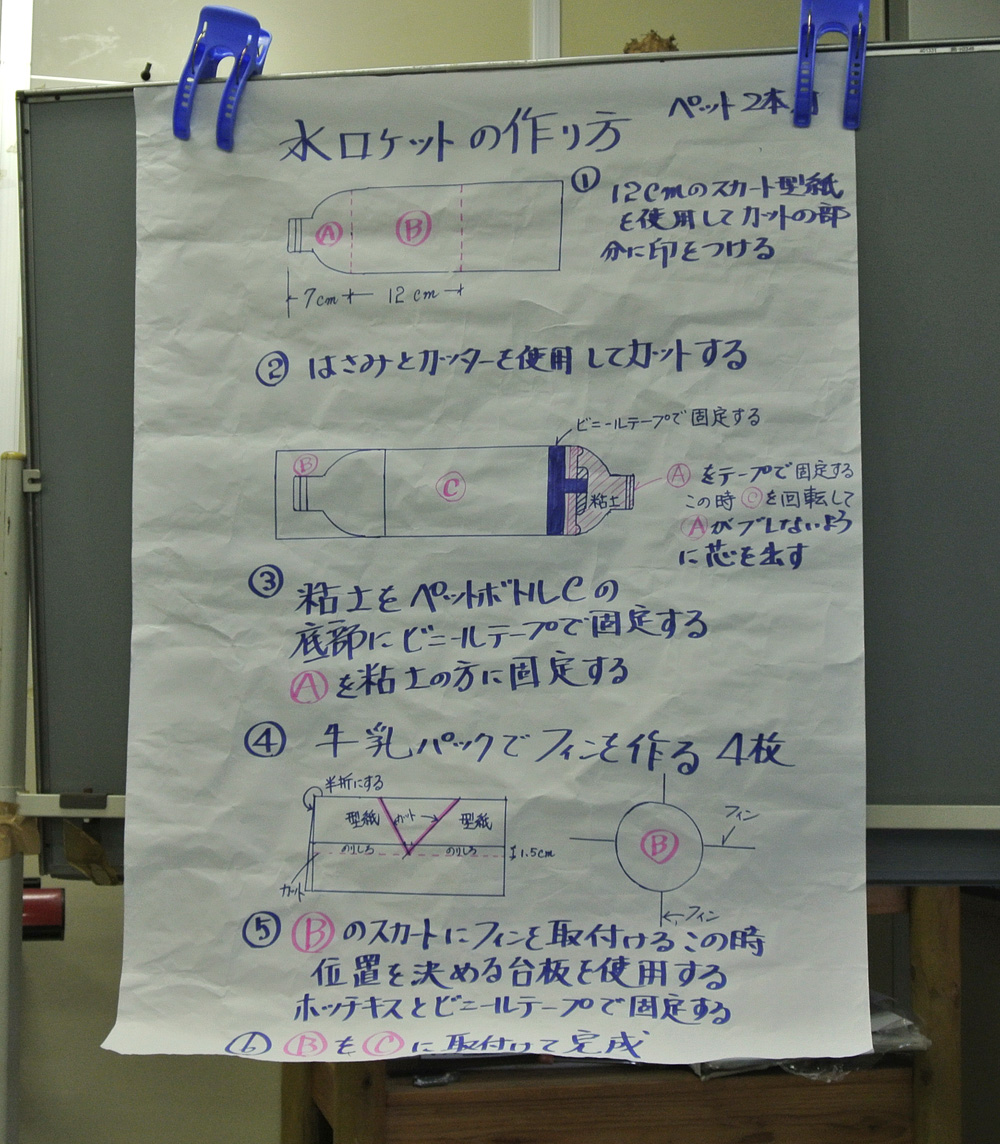 水ロケットの作り方
ペット2本
① 12cmのスカート型紙
を使用してカットの部
分に印をつける
A B
7cm 12cm
② はさみとカッターを使用してカットする
ビニールテープで固定する
B C 粘土
Aをテープで固定する
この時Cを回転して
Aがブレないよう
に芯を出す
③ 粘土をペットボトルCの
底部にビニールテープで固定する
Aを粘土の方に固定する
④ 牛乳パックでフィンを作る 4枚
半折にする
型紙 カット 型紙
のりしろ のりしろ 1.5cm
カット
フィン
B
フィン
⑤ Bのスカートにフィンを取付けるこの時
位置を決める台板を使用する
ホッチキスとビニールテープで固定する
⑥ BをCに取付けて完成